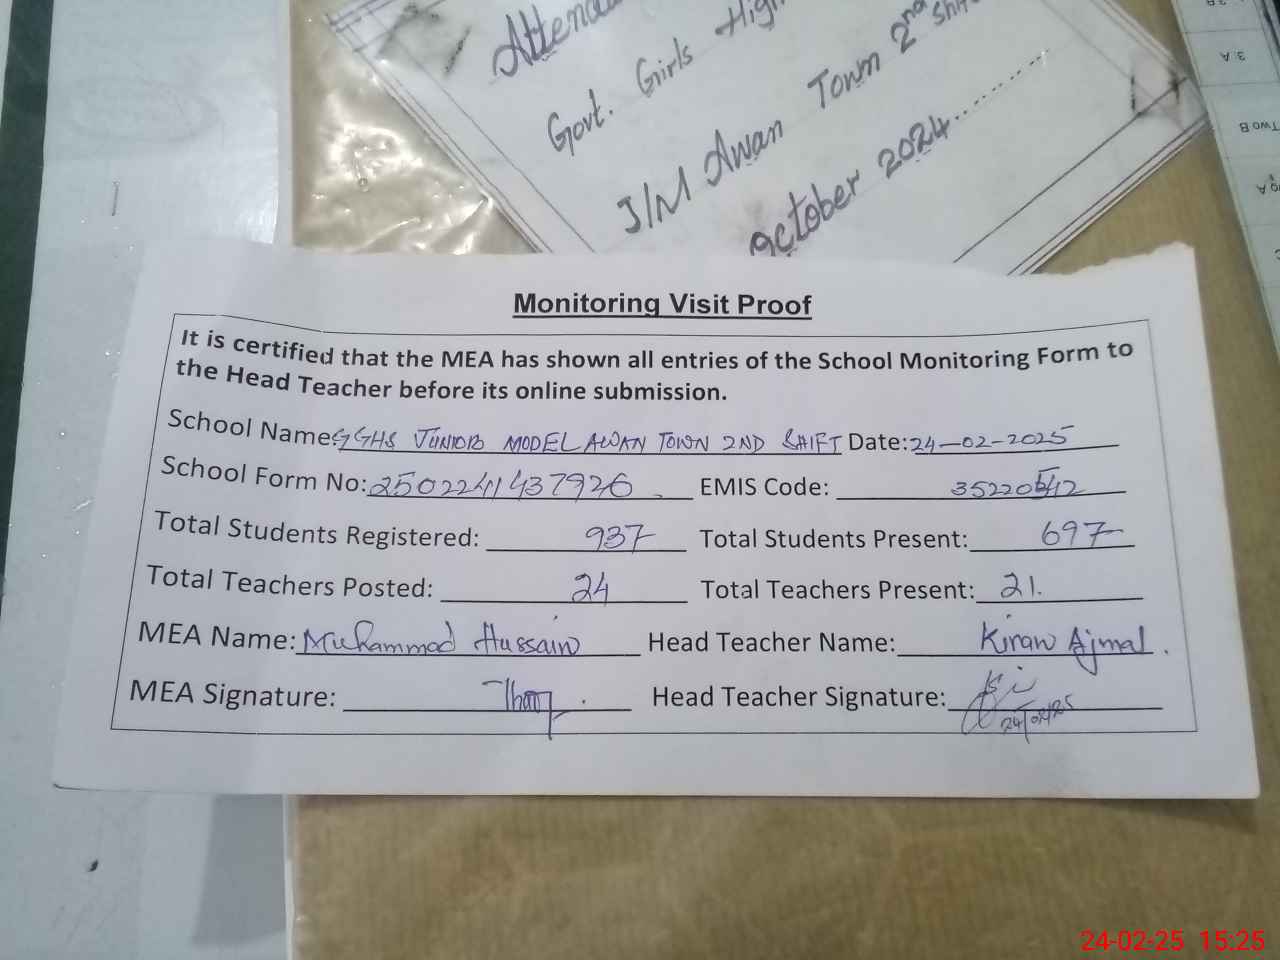 Govt. Girls High
J/M Awan Town 2nd Shift
October 2024..........
3. A
Two B
Monitoring Visit Proof
It is certified that the MEA has shown all entries of the School Monitoring Form to
the Head Teacher before its online submission.
School Name: GGHS JUNIOR MODEL AWAN TOWN 2ND SHIFT Date: 24-02-2025
School Form No: 2502241437926 EMIS Code:
Total Students Registered: 937 Total Students Present: 697
Total Teachers Posted: 24 Total Teachers Present: 21.
MEA Name: Muhammad Hussain Head Teacher Name: Kiran Ajmal.
MEA Signature: Head Teacher Signature:
24/02/25
24-02-25 15:25